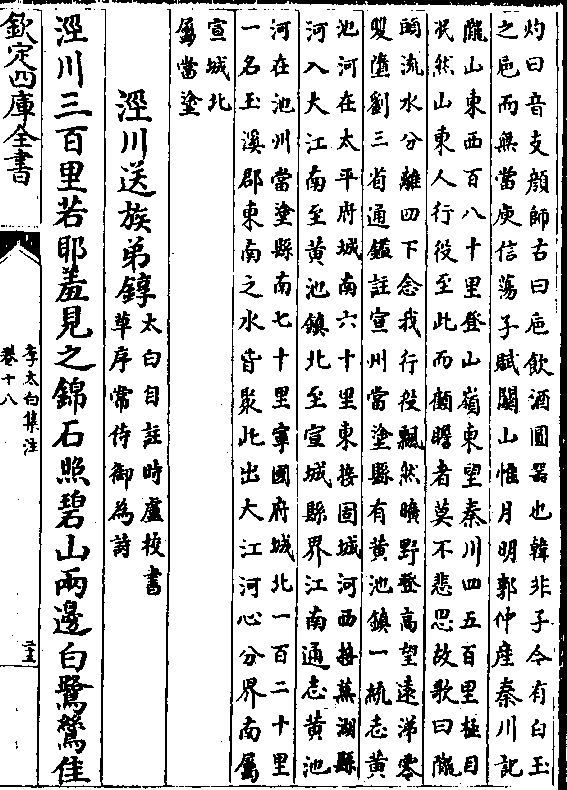 灼曰音支顔師古曰巵飲酒圓器也韓非子今有白玉
之巵而無當庾信蕩子賦關山惟月明郭仲産秦川記
隴山東西百八十里登山嶺東望秦川四五百里極目
泯然山東人行役至此而顧瞻者莫不悲思故歌曰隴
頭流水分離四下念我行役飄然曠野登高望遠涕零
雙墮劉三省通鑑註宣州當塗縣有黄池鎮一統志黄
池河在太平府城南六十里東接固城河西接蕪湖縣
河入大江南至黄池鎮北至宣城縣界江南通志黄池
河在池州當塗縣南七十里寧國府城北一百二十里
一名玉溪郡東南之水皆聚此出大江河心分界南屬
宣城北
屬當塗
涇川送族弟錞
太白自註時盧校書
草序常侍御為詩
涇川三百里若耶羞見之錦石照碧山兩邊白鷺鷥佳
欽定四庫全書
李太白集注
卷十八
二十五